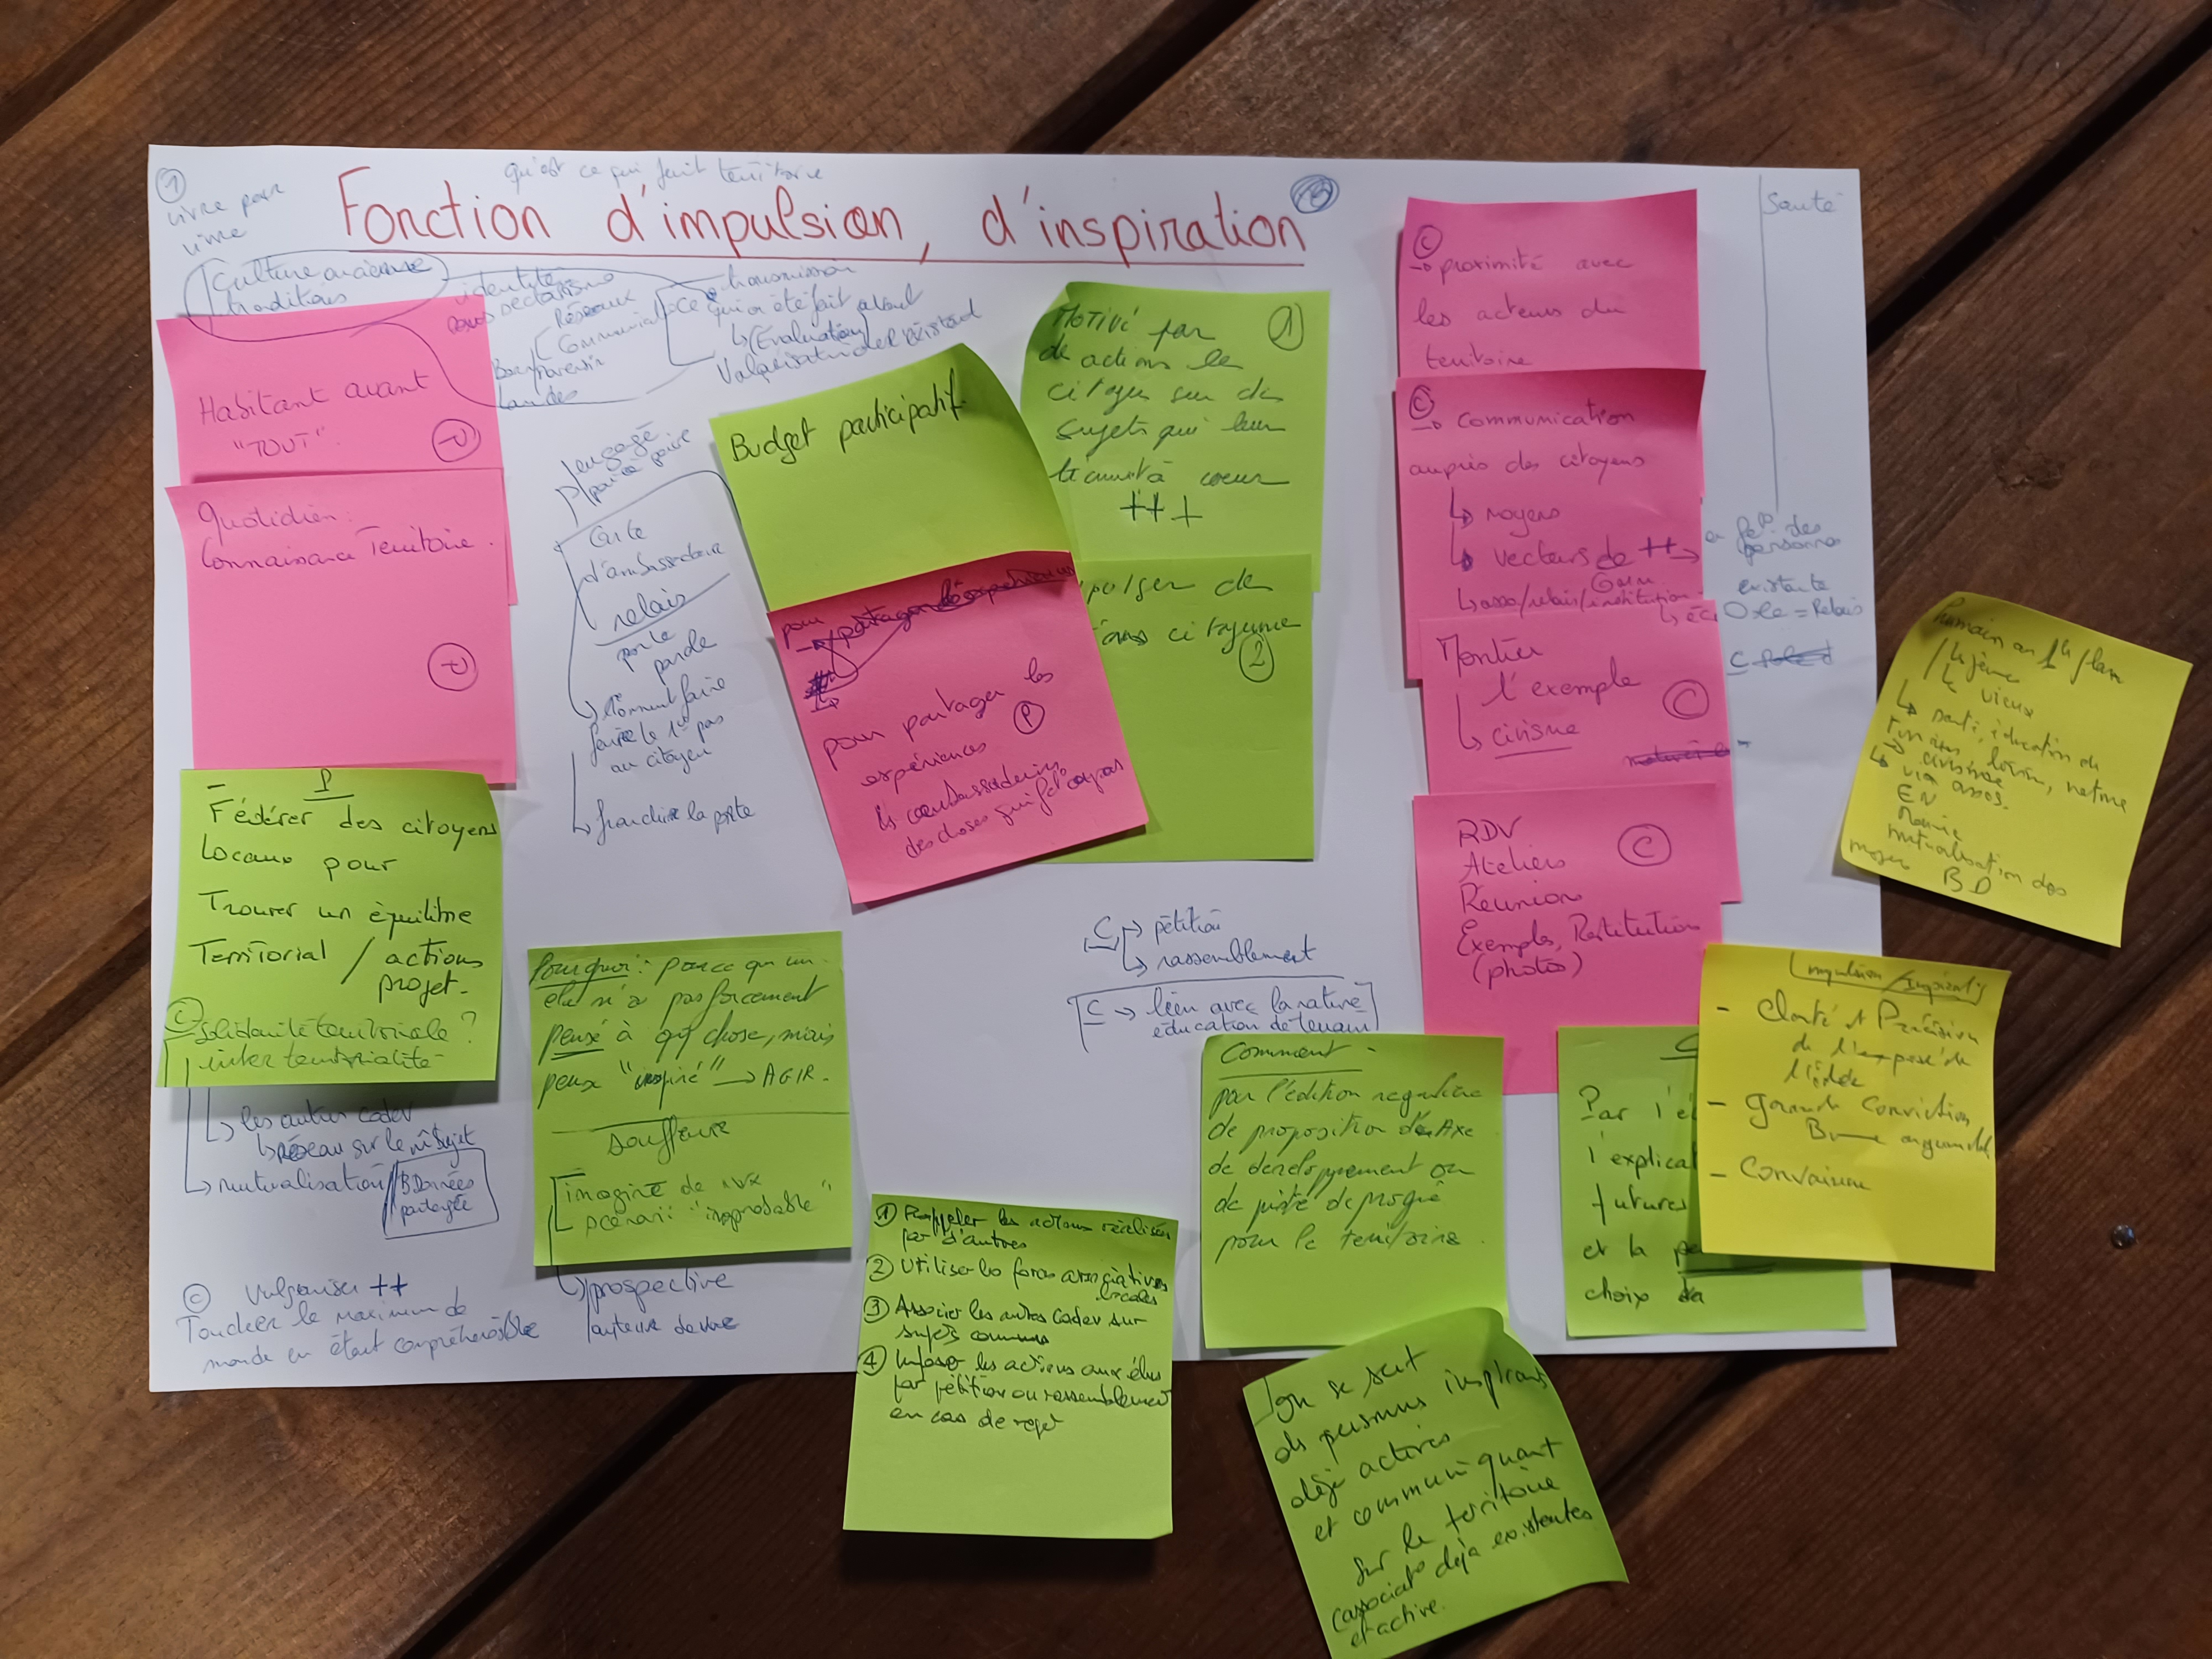 1
vivre pour
vivre
qu'est ce qui fait territoire
Fonction d'impulsion, d'inspiration
Santé
Culture ancienne
traditions
identité
sectarisme
Réseaux
transmission
Ce qui a été fait avant
↳ (Evaluation)
Valorisation de l'existant
Landes
Habitant avant
"TOUT".
Quotidien:
Connaissance Territoire.
P
- Fédérer des citoyens
Locaux pour
Trouver un équilibre
Territorial / actions
projet-
C solidarité territoriale?
inter territorialité-
↳ les autres codev
↳ réseau sur le m̂ sujet
↳ mutualisation
BDonnées
partagée
C Vulgariser ++
Toucher le maximum de
monde en étant compréhensible
engagé
Carte
d'ambassadeur
relais
porte
parole
↳ comment faire
faire le 1er pas
au citoyen
↳ franchir la porte
Budget participatif
pour
pour partager les
expériences P
des choses qui
Motivé par 1
de actions le
citoyen sur des
sujets qui leur
tiennent à coeur
+++
citoyenne
2
Pourquoi: parce qu'un
élu n'a pas forcément
pensé à qq chose, mais
peux "inspiré" → AGIR.
souffleur
imaginé de nvx
scénarii "improbable"
↳ prospective
C → pétition
↳ rassemblement
C → lien avec la nature
éducation de terrain
1 Rappeler les actions réalisées
par d'autres
2 Utiliser les forces associatives
locales
3 Associer les autres Codev sur
sujets communs
4 Imposer les actions aux élus
par pétition ou rassemblement
en cas de rejet
Comment -
par l'édition régulière
de proposition d'Axe
de développement ou
de piste de progrè
pour le territoire.
on se sert
des personnes inspirants
déjà actives
et communiquant
sur le territoire
(associat° déjà existentes
et active.
C
→ proximité avec
les acteurs du
territoire
C
→ communication
auprès des citoyens
↳ moyens
↳ vecteurs de ++ →
↳ asso/relais/institution
en fct° des
personnes
existante
↳ école = Relais
Montrer
l'exemple
↳ civisme
C
RDV
Ateliers
Réunion
Exemples, Restitution
(photos)
C
Par l'é
l'explicat
futures
et la pe
choix da
Impulsion/Inspirati
- Clarté et Précision
de l'exposé de
l'idée
- Grande Conviction
Bonne argumentat
- Convaincre
Humain au 1er plan
le jeune
le vieux
↳ santé, éducation
civisme
↳ via assos.
EN
Mairie
mutualisation des
moyens BD